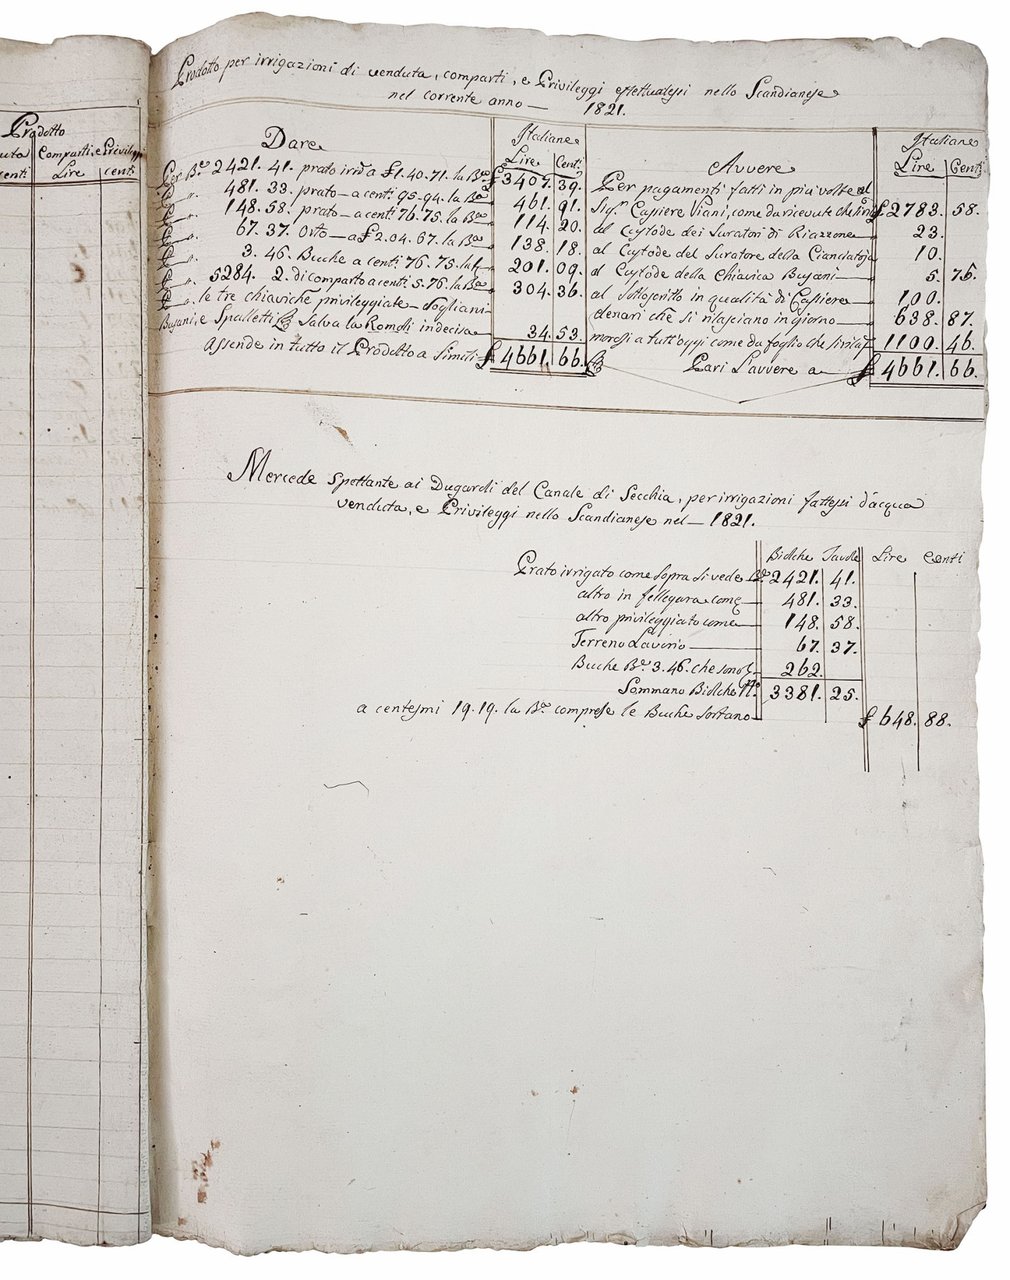 Prodotto
Comparti, e Privileggi
centi Lire centi
Prodotto per irrigazioni di venduta, comparti, e Privileggi effettuatesi nello Scandianese
nel corrente anno — 1821.
Dare
Italiane
Lire Centi
Per Be. 2421. 41. prato irrid. a £1.40.71. la Ba. £ 3407. 39.
Per „ 481. 33. prato — a centi. 95.94. la Ba. 461. 91.
Per „ 148. 58. prato — a centi. 76.75. la Ba. 114. 20.
Per „ 67. 37. Orto — a £2.04.67. la Ba. 138. 18.
Per „ 3. 46. Buche a centi. 76.75. la 201. 09.
Per „ 5284. 2. di comparto a centi. 5.76. la Ba. 304. 36.
Per „ le tre chiaviche privileggiate — Fogliani
Busani, e Spalletti Salva la Romoli indecisa 34. 53.
Assende in tutto il Prodotto a Simili £ 4661. 66.
Avvere
Italiane
Lire Centi
Per pagamenti fatti in più volte al
Sigr. Cassiere Viani, come da ricevute che £ 2783. 58.
al Custode dei Suratori di Riazzone 23.
al Custode del Suratore della Cianciatoja 10.
al Custode della Chiavica Busani — 5. 75.
al Sottoscritto in qualità di Cassiere 100.
denari che si rilasciano in giorno — 638. 87.
morosi a tutt'oggi come da foglio che £ 1100. 46.
Pari L'avvere a £ 4661. 66.
Mercede Spettante ai Dugaroli del Canale di Secchia, per irrigazioni fattesi d'acqua
venduta, e Privileggi nello Scandianese nel — 1821.
Biolche Tavole Lire Centi
Prato irrigato come sopra si vede Be. 2421. 41.
altro in fellegara come — 481. 33.
altro privileggiato come — 148. 58.
Terreno Lavorio — 67. 37.
Buche Be. 3.46. che sono 262.
Sommano Biolche No. 3381. 25.
a centesmi 19.19. la Ba. comprese le Buche sortano £ 648. 88.